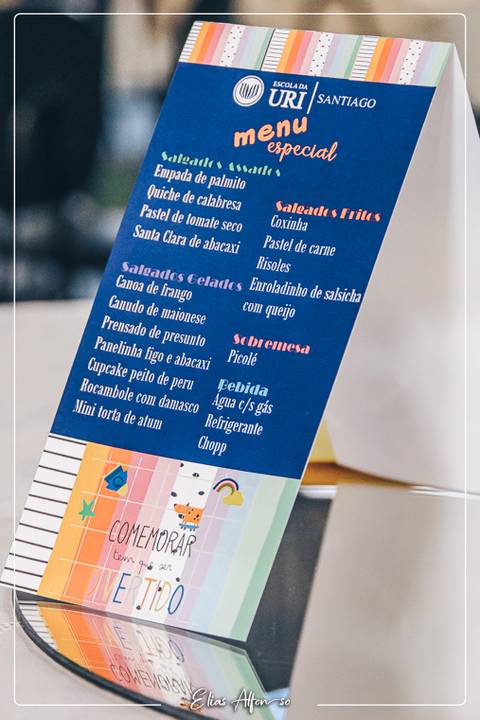 ESCOLA DA
URI SANTIAGO
menu
especial
Salgados Assados
Empada de palmito
Quiche de calabresa
Pastel de tomate seco
Santa Clara de abacaxi
Salgados Gelados
Canoa de frango
Canudo de maionese
Prensado de presunto
Panelinha figo e abacaxi
Cupcake peito de peru
Rocambole com damasco
Mini torta de atum
Salgados Fritos
Coxinha
Pastel de carne
Risoles
Enroladinho de salsicha
com queijo
Sobremesa
Picolé
Bebida
Água c/s gás
Refrigerante
Chopp
COMEMORAR
tem que ser
DIVERTIDO
Elias Alfonso